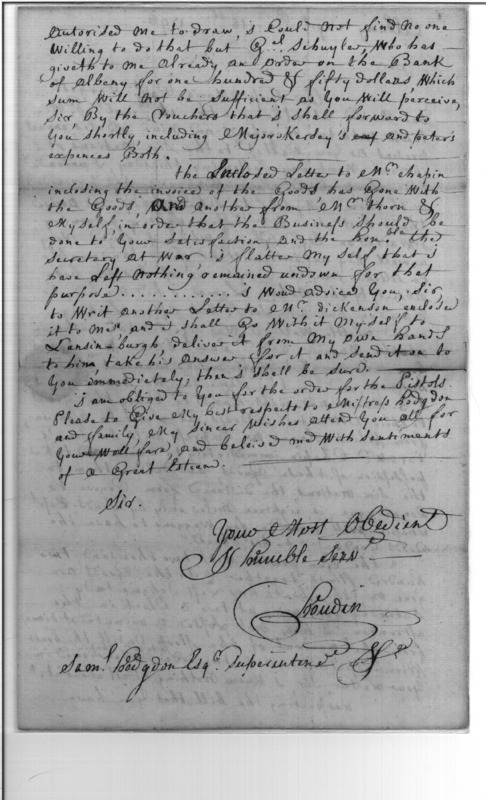 autorised me to draw, i Could not find no one
Willing to do that but Gel Schuyler, Who has
giveth to me already an order on the Bank
of albany for one hundred & fifty dollars, Which
sum Will not be sufficient as You Will perceive,
Sir, By the Vouchers that i shall forward to
You shortly, including Major Kersey's and peter's
expences Both.
the Inclosed Letter to Mr. Chapin
inclosing the invoice of the Goods has Gone With
the Goods, and another from Mr. thorn &
Myself in order that the Business should be
done to Your satisfaction and the honble the
secretary at War i flatter My self that i
have Left nothing remained undown for that
purpose............ i Woud advice You, Sir,
to Writ another Letter to Mr. dickenson enclose
it to Me and i shall Go With it My self to
Lansin-burgh deliver it from My own hands
to him, take his answer for it and send it on to
You immediately, then i shall be sure.
i am obliged to You for the order for the Pistols.
Please to Give My best respects to Mistress hodgdon
and family, My sincer Wishes attend You all for
Your Wallfare, and beleived me With sentiments
of a Great Esteem.
Sir.
Your Most Obedient
& humble Servt
Joudin
Saml. hodgdon Esqr. Superintend &c